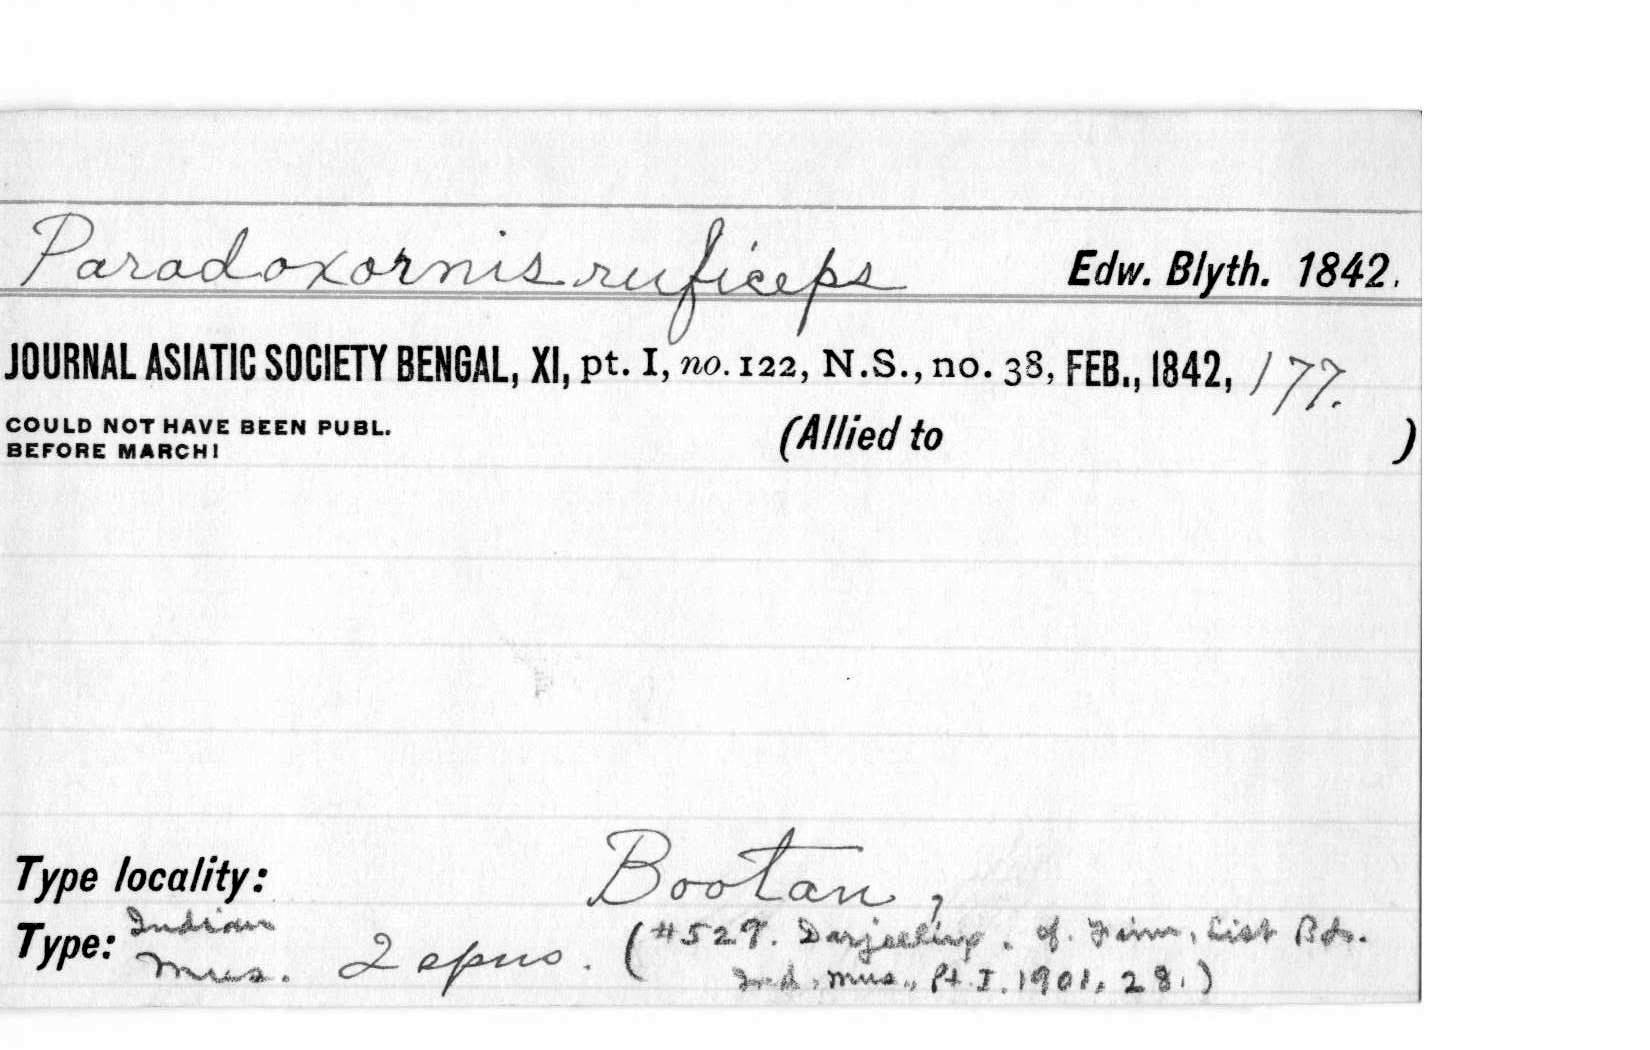 Paradoxornis ruficeps Edw. Blyth. 1842.
JOURNAL ASIATIC SOCIETY BENGAL, XI, pt. I, no. 122, N.S., no. 38, FEB., 1842, 177.
COULD NOT HAVE BEEN PUBL.
BEFORE MARCH!
(Allied to )
Type locality: Bootan,
Type: Indian Mus. 2 spns. (#527. Darjeeling. cf. Finn, List Bds.
Ind. Mus., Pt. I. 1901, 28.)